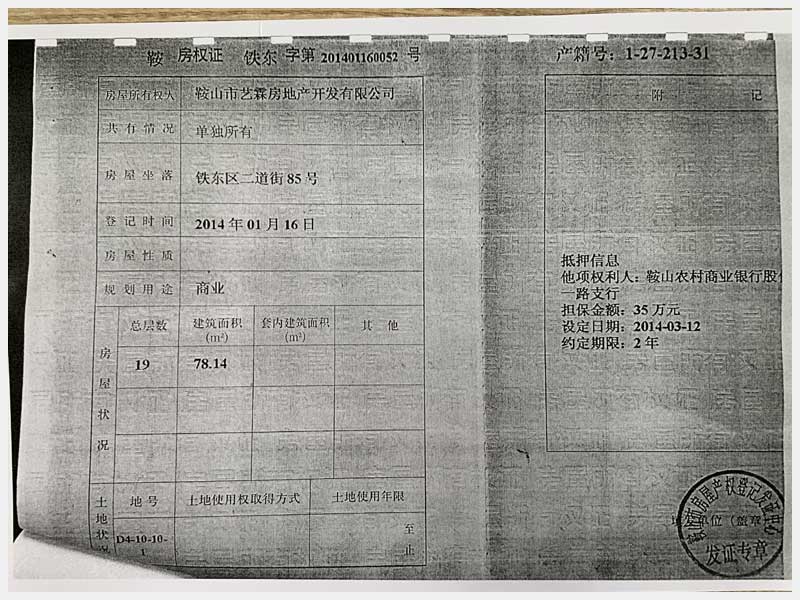 鞍 房权证 铁东 字第 201401160052 号
产籍号：1-27-213-31
房屋所有权人 鞍山市艺霖房地产开发有限公司
共有情况 单独所有
房屋坐落 铁东区二道街85号
登记时间 2014年01月16日
房屋性质
规划用途 商业
房屋状况
总层数 建筑面积(m²) 套内建筑面积(m²) 其他
19 78.14
土地状况
地号 土地使用权取得方式 土地使用年限
D4-10-10-1 至 止
附 记
抵押信息
他项权利人：鞍山农村商业银行股
一路支行
担保金额：35万元
设定日期：2014-03-12
约定期限：2年
单位（盖章
房屋产权登记发证
发证专章